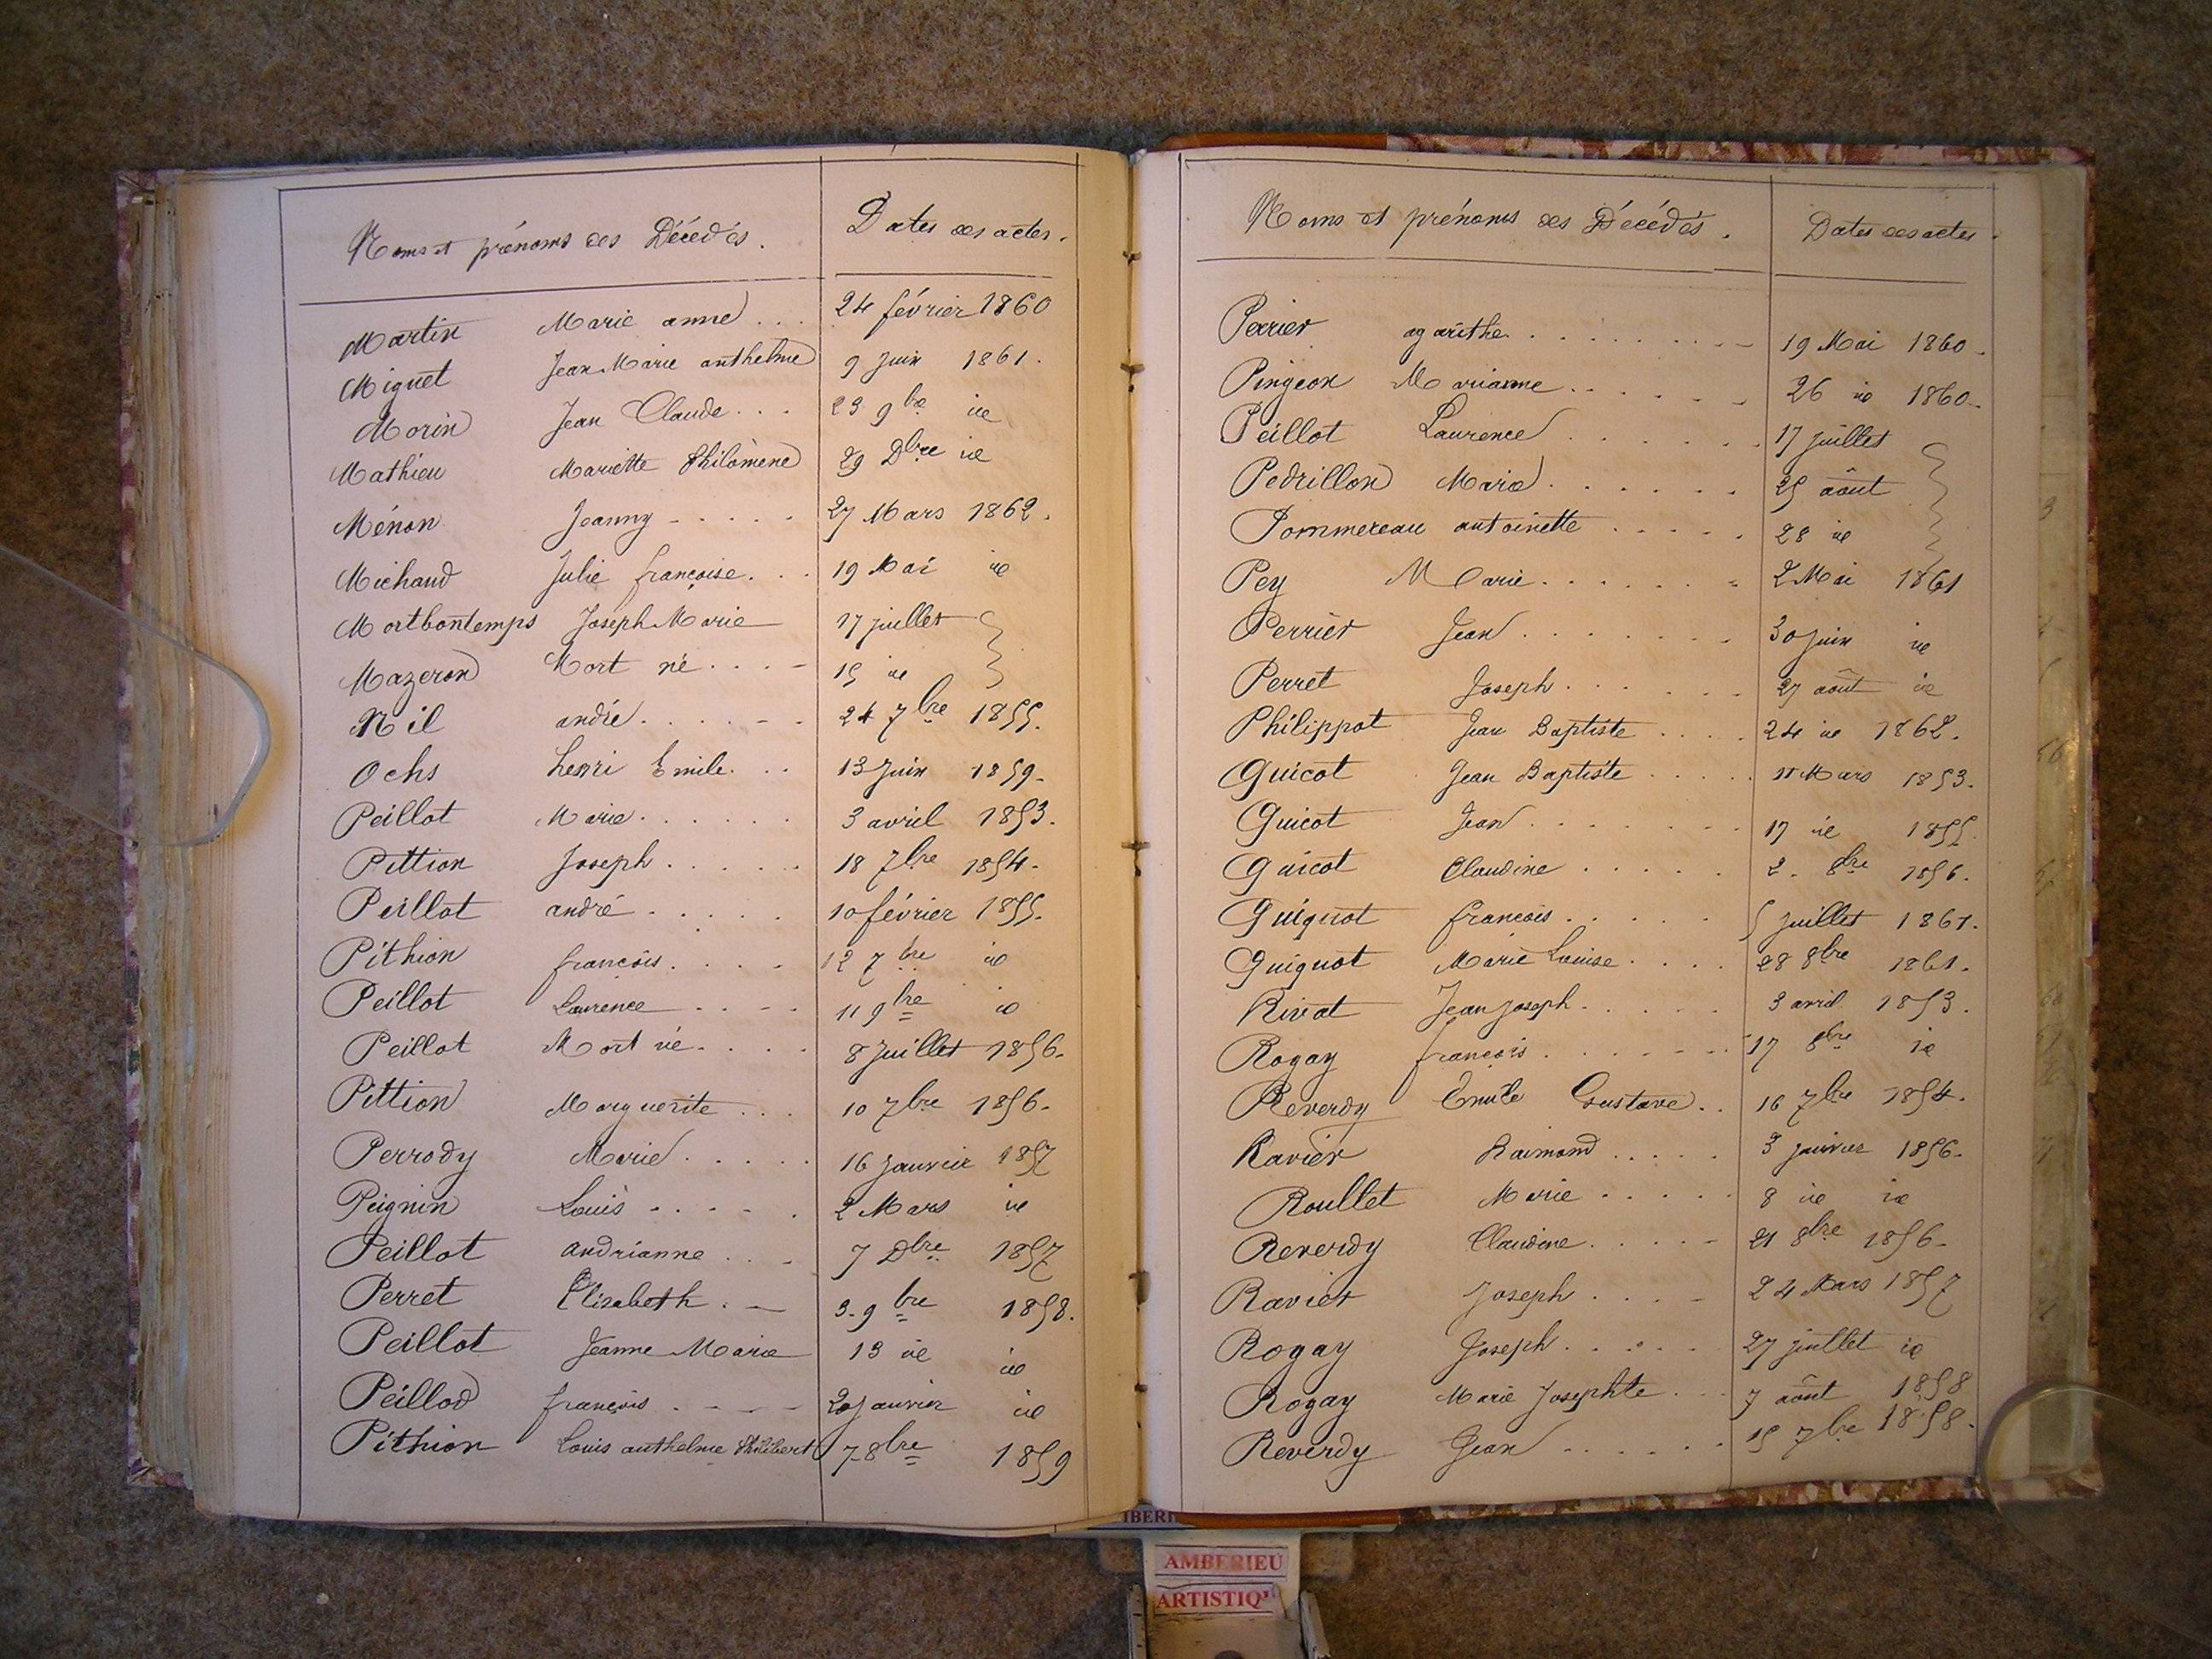 Noms et prénoms des Décédés. Dates des actes.
Martin Marie anne . . . 24 février 1860
Miguet Jean Marie anthelme 9 Juin 1861.
Morin Jean Claude . . . 23 9bre id
Mathieu Mariette Philomène 29 Dbre id
Ménon Jeanny - . . . . 27 Mars 1862.
Michaud Julie françoise. . . 19 Mai id
Mortbontemps Joseph Marie 17 juillet
Mazeron Mort né . . . - 15 id
Nil andré . . . . - - 24 7bre 1855.
Ochs henri Emile. . . 13 Juin 1859.
Peillot Marie . . . . . . 3 avril 1853.
Pittion Joseph . . . . . 18 7bre 1854.
Peillot andré . . . . . 10 février 1855.
Pithion françois . . . . 12 7bre id
Peillot Laurence . . . . 11 9bre id
Peillot Mort né . . . . 8 Juillet 1856.
Pittion Marguerite . . . 10 7bre 1856.
Perrody Marie . . . . . 16 Janveir 1857
Peignin Louis . . . . . 2 Mars id
Peillot andrianne . . . 7 Dbre 1857
Perret Elizabeth . — 3. 9bre 1858.
Peillot Jeanne Marie 13 id id
Peillod françois . - - - 20 Janvier id
Pithion Louis anthelme Philibert 7 8bre 1859
Noms et prénoms des Décédés. Dates des actes.
Perrier agarithe . . . . . . . . . 19 Mai 1860.
Pingeon Marianne . . . . . . 26 id 1860.
Peillot Laurence . . . . . . . 17 juillet
Pedrillon Marie . . . . . . 25 août
Pommereau antoinette . . . . . 28 id
Pey Marie . . . . . . . 2 Mai 1861
Perrier Jean . . . . . . . 30 Juin id
Perret Joseph . . . . . . 27 août id
Philippot Jean Baptiste . . . . 24 id 1862.
Guicot Jean Baptiste . . . . . 11 Mars 1853.
Guicot Jean . . . . . . . 17 id 1855.
Guicot Claudine . . . . . 2. 8bre 1856.
Guignot françois . . . . . 5 Juillet 1861.
Guignot Marie Louise . . . . 28 8bre 1861.
Rivat Jean Joseph . . . . . 3 avril 1853.
Rogay françois . . . . . . . 17 8bre id
Reverdy Emile Gustave . . 16 7bre 1854.
Ravier Raimond . . . . . 3 janvier 1856.
Roullet Marie . . . . . 8 id id
Reverdy Claudine . . . . . 21 8bre 1856.
Ravier Joseph . . . . 24 Mars 1857
Rogay Joseph . . . . . 27 juillet id
Rogay Marie Josephte . . . 7 août 1858
Reverdy Jean . . . . . . 15 7bre 1858.
AMBERIEU
ARTISTIQ